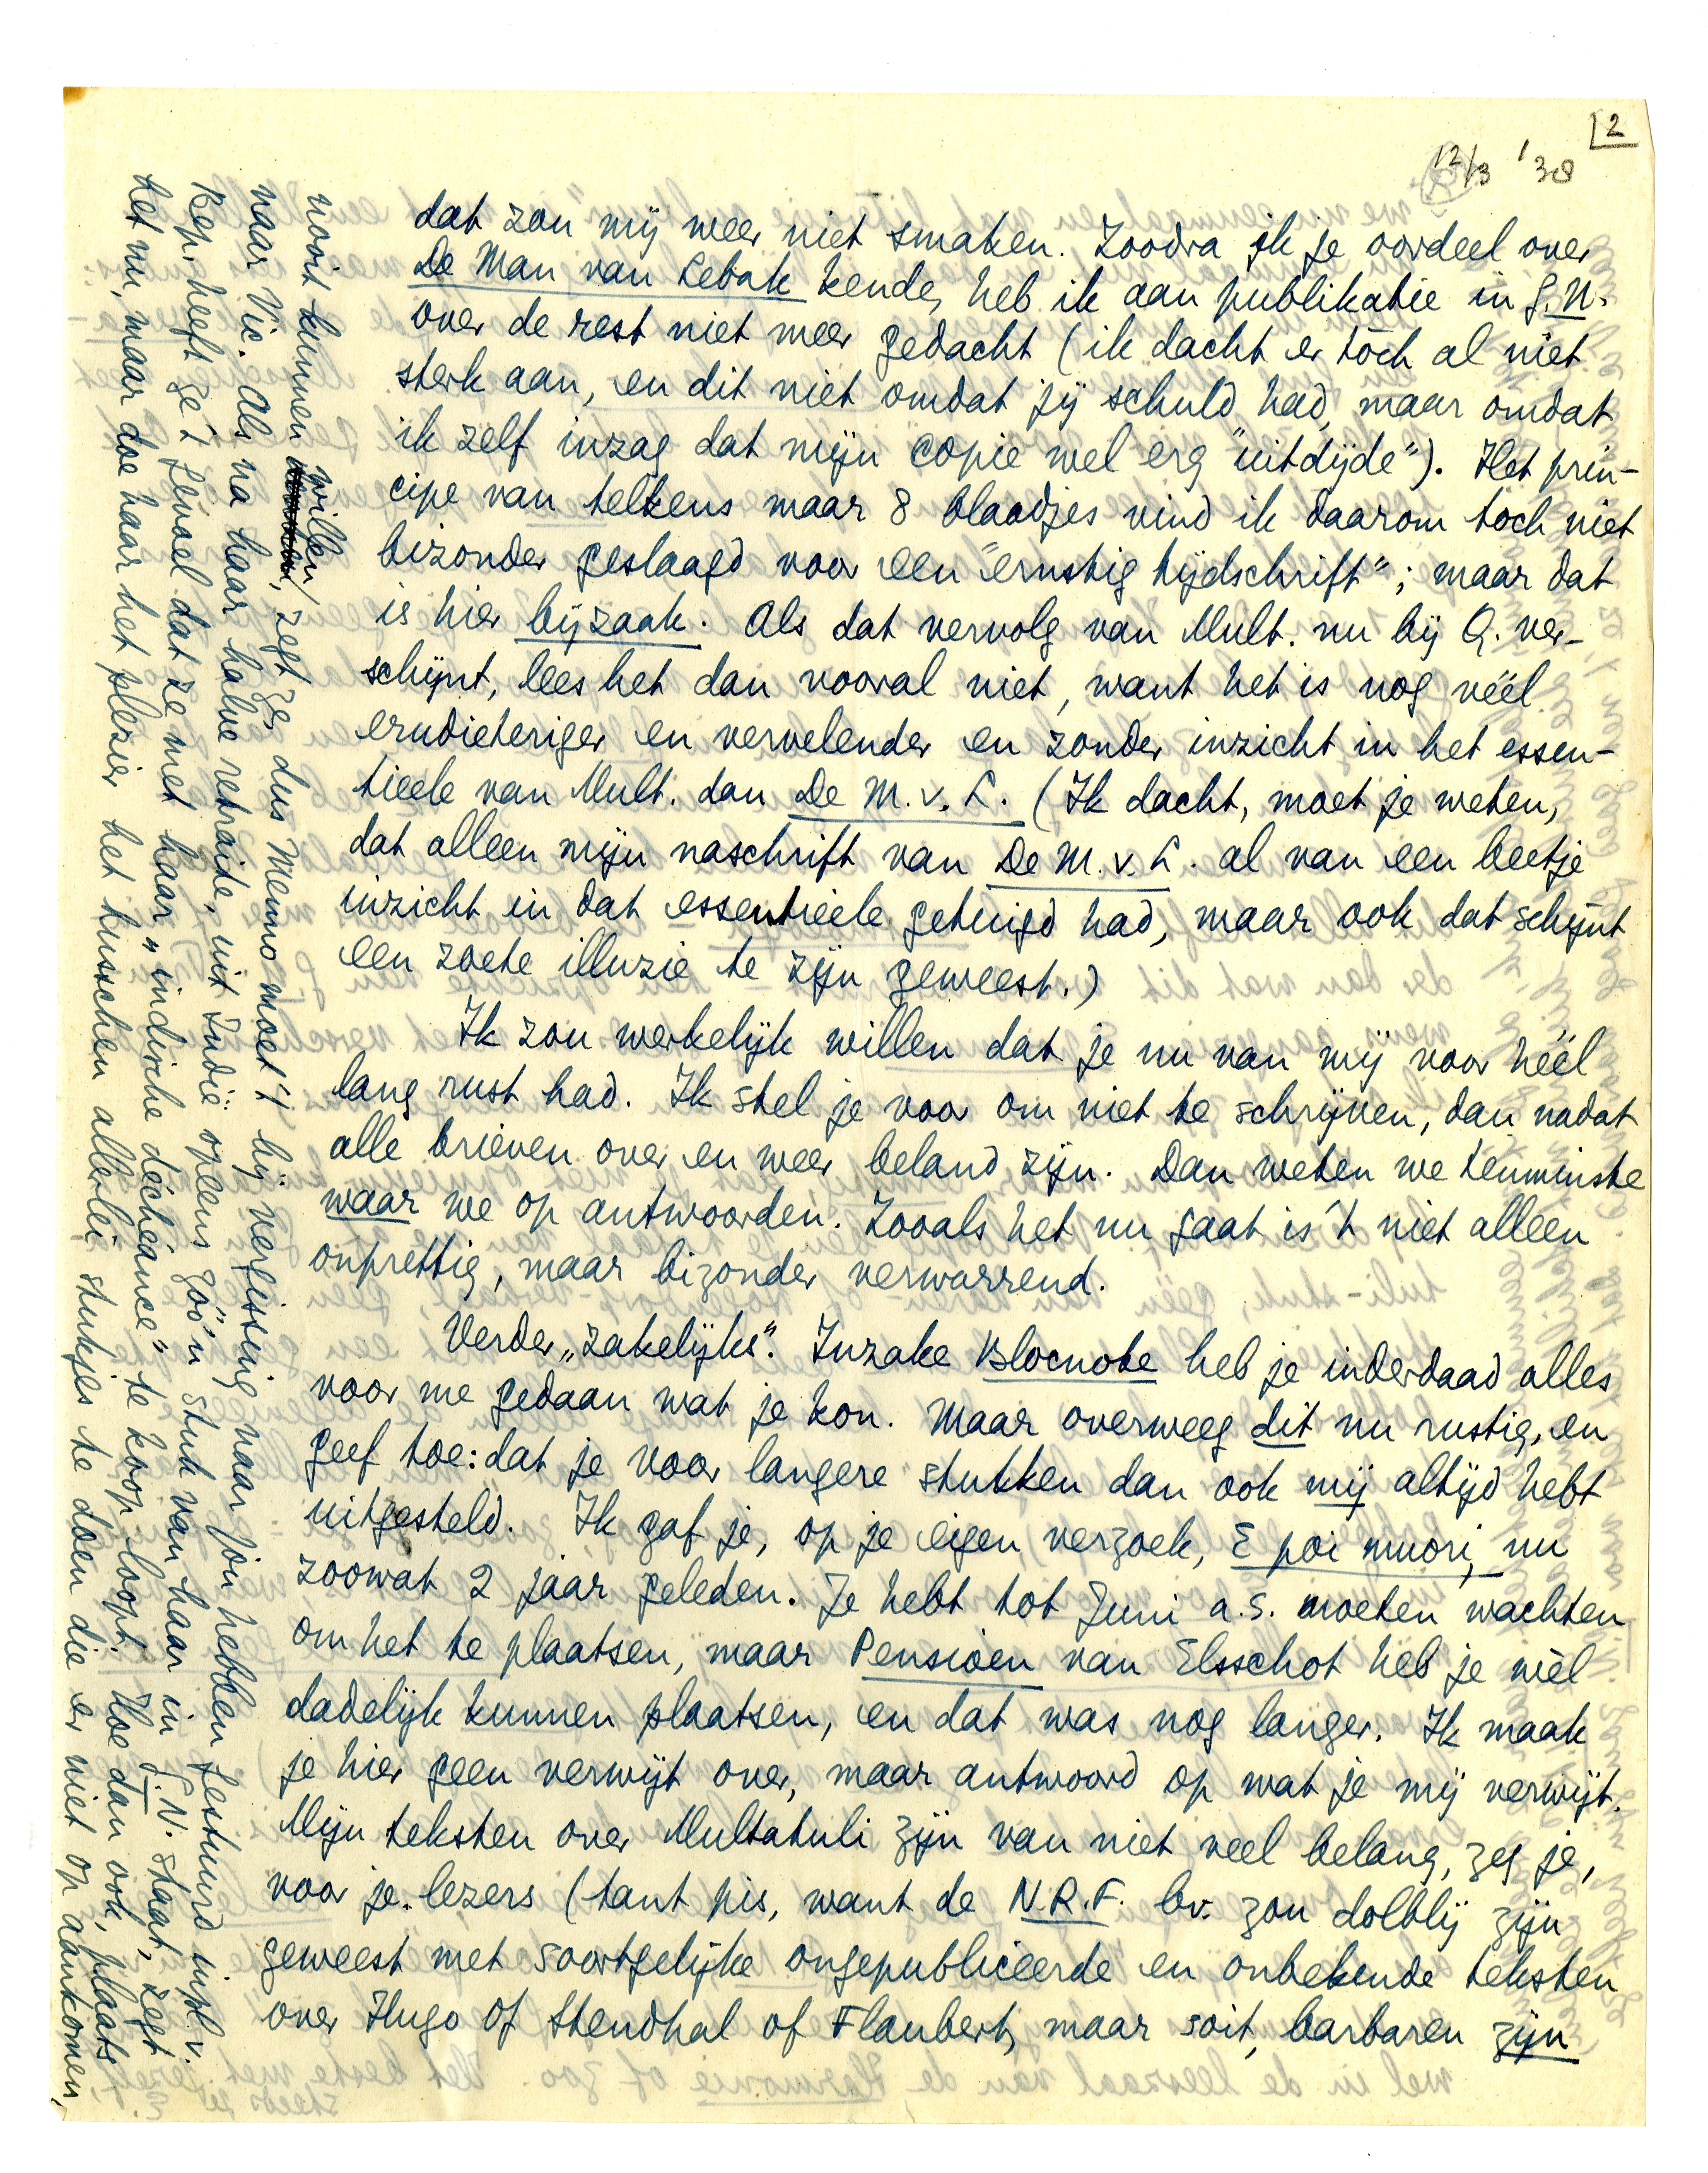 2
12/3 '38
dat zou mij weer niet smaken. Zoodra ik je oordeel over
De Man van Lebak kende, heb ik aan publikatie in G.N.
over de rest niet meer gedacht (ik dacht er tòch al niet
sterk aan, en dit niet omdat jij schuld had, maar omdat
ik zelf inzag dat mijn copie wel erg "uitdijde"). Het prin-
cipe van telkens maar 8 blaadjes vind ik daarom toch niet
bizonder geslaagd voor een "ernstig tijdschrift"; maar dat
is hier bijzaak. Als dat vervolg van Mult. nu bij Q. ver-
schijnt, lees het dan vooral niet, want het is nog véél
erudieteriger en vervelender en zonder inzicht in het essen-
tieele van Mult. dan De M.v.L. (Ik dacht, moet je weten,
dat alleen mijn naschrift van De M.v.L. al van een beetje
inzicht in dat essentieele getuigd had, maar ook dat schijnt
een zoete illuzie te zijn geweest.)
Ik zou werkelijk willen dat je nu van mij voor héél
lang rust had. Ik stel je voor om niet te schrijven, dan nadat
alle brieven over en weer beland zijn. Dan weten we tenminste
waar we op antwoorden. Zooals het nu gaat is 't niet alleen
onprettig, maar bizonder verwarrend.
Verder „zakelijks". Inzake Blocnote heb je inderdaad alles
voor me gedaan wat je kon. Maar overweeg dit nu rustig, en
geef toe: dat je voor langere stukken dan ook mij altijd hebt
uitgesteld. Ik gaf je, op je eigen verzoek, E poi muori, nu
zoowat 2 jaar geleden. Je hebt tot Juni a.s. moeten wachten
om het te plaatsen, maar Pensioen van Elsschot heb je wèl
dadelijk kunnen plaatsen, en dat was nog langer. Ik maak
je hier geen verwijt over, maar antwoord op wat je mij verwijt.
Mijn teksten over Multatuli zijn van niet veel belang, zeg je,
voor je lezers (tant pis, want de N.R.F. bv. zou dolblij zijn
geweest met soortgelijke ongepubliceerde en onbekende teksten
over Hugo of Stendhal of Flaubert, maar soit, barbaren zijn
nooit kunnen willen, zegt ze, dus Menno moet 't bij vergissing naar jou hebben gestuurd inpl. v.
naar Vic. Als na haar halve retraide, uit Indië opeens zóó'n stuk van haar in G.N. staat, zegt
Bep, heeft ze 't gevoel dat ze met haar „indische déchéance" te koop loopt. Hoe dan ook, plaats
het nu, maar doe haar het plezier het tusschen allerlei stukjes te doen die er niet op aankomen,